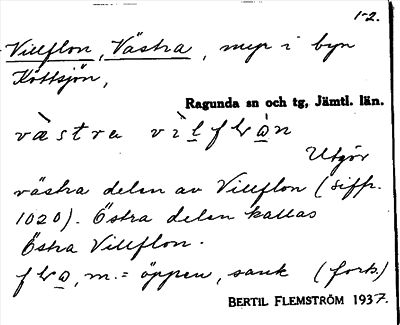 1-2.
Villflon, Västra, myr i byn
Köttsjön,
Ragunda sn och tg, Jämtl. län.
västra vìlflòn
Utgör
västra delen av Villflon (siffr.
1020). Östra delen kallas
Östra Villflon.
m. = öppen, sank (forts.)
BERTIL FLEMSTRÖM 1937.